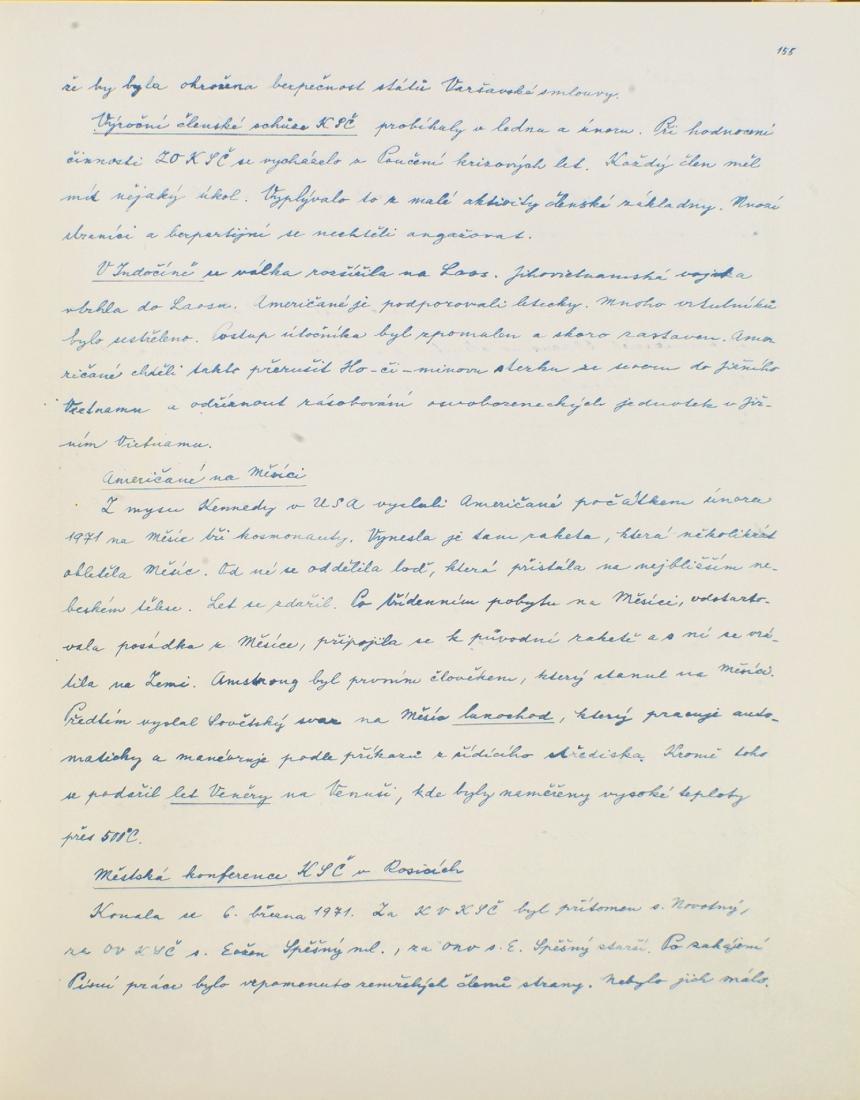 155
že by byla ohrožena bezpečnost států Varšavské smlouvy.
Výroční členské schůze KSČ probíhaly v lednu a únoru. Při hodnocení
činnosti ZO KSČ se vycházelo z Poučení krizových let. Každý člen měl
mít nějaký úkol. Vyplývalo to z malé aktivity členské základny. Mnozí
straníci a bezpartijní se nechtěli angažovat.
V Indočíně se válka rozšířila na Laos. Jihovietnamská vojska
vtrhla do Laosu. Američané je podporovali letecky. Mnoho vrtulníků
bylo sestřeleno. Postup útočníka byl zpomalen a skoro zastaven. Ame
ričané chtěli takto přerušit Ho-či-minovu stezku ze severu do Jižního
Vietnamu a odříznout zásobování osvobozeneckých jednotek v Již-
ním Vietnamu.
Američané na Měsíci
Z mysu Kennedy v USA vyslali Američané počátkem února
1971 na Měsíc tři kosmonauty. Vynesla je tam raketa, která několikrát
obletěla Měsíc. Od ní se oddělila loď, která přistála na nejbližším ne-
beském tělese. Let se zdařil. Po třídenním pobytu na Měsíci, odstarto-
vala posádka z Měsíce, připojila se k původní raketě a s ní se vrá-
tila na Zemi. Amstrong byl prvním člověkem, který stanul na Měsíci.
Předtím vyslal Sovětský svaz na Měsíc lunochod, který pracuje auto-
maticky a manévruje podle příkazů z řídícího střediska. Kromě toho
se podařil let Venéry na Venuši, kde byly naměřeny vysoké teploty
přes 500°C.
Městská konference KSČ v Rosicích
Konala se 6. března 1971. Za KV KSČ byl přítomen s. Novotný,
za OV KSČ s. Evžen Spěšný ml., za ONV s. E. Spěšný starší. Po zahájení
Písní práce bylo vzpomenuto zemřelých členů strany. Nebylo jich málo.